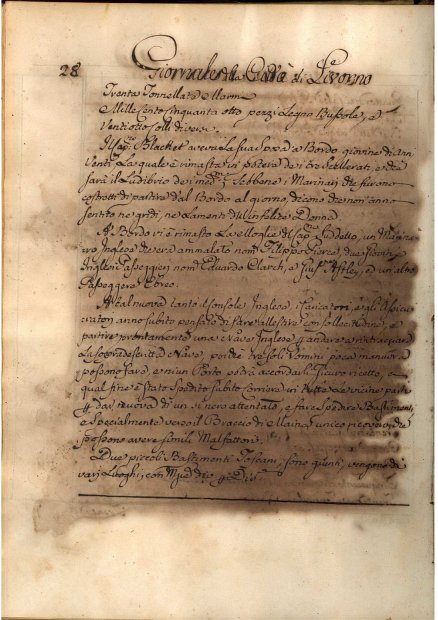 28 Giornale della Città di Livorno
Trenta Tonnellate Marmi
Mille Cento Cinquanta otto pezzi Legno Bussolo, e
Ventiotto Colli diversi
Il Cap. Blacket aveva la sua Sposa a Bordo giovine di anni
Venti La quale è rimasta in potere dei tre Scellerati, e che
sarà il Ludibrio dei med. Sebbene i Marinari che furono
costretti di partire dal Bordo al giorno, dicono che non anno
sentito ne gridi, ne Lamenti dell'infelice Donna
A Bordo vi è rimasto Lavelloque del Cap. Suddetto, un Marina
ro Inglese che era ammalato nom. Filippo Pierce, due
Inglesi Passeggieri nom. Eduardo Clarch, e Astley, e un altro
Passeggero Ebreo.
A tal nuova tanto il Console Inglese i Caricatori, e gli Assicu
ratori anno subito pensato di fare allestire con sollecitudine, e
partire prontamente una Nave Inglese p andare a rintracciare
La sopradescritta Nave, poiche tre soli Uomini poca manuvra
possono fare, e niun Porto potrà accordarli sicuro ricetto, a
qual fine è stato Spedito subito Corriere in tutte Le vicine parti
p dar nuova di un sì nero attentato, e fare Spedire Bastimenti,
e Specialmente verso il Braccio di Maina, unico ricovero che
possono avere simili Malfattori.
Due piccoli Bastimenti Toscani, sono giunti, vengono da
varj Luoghi, con